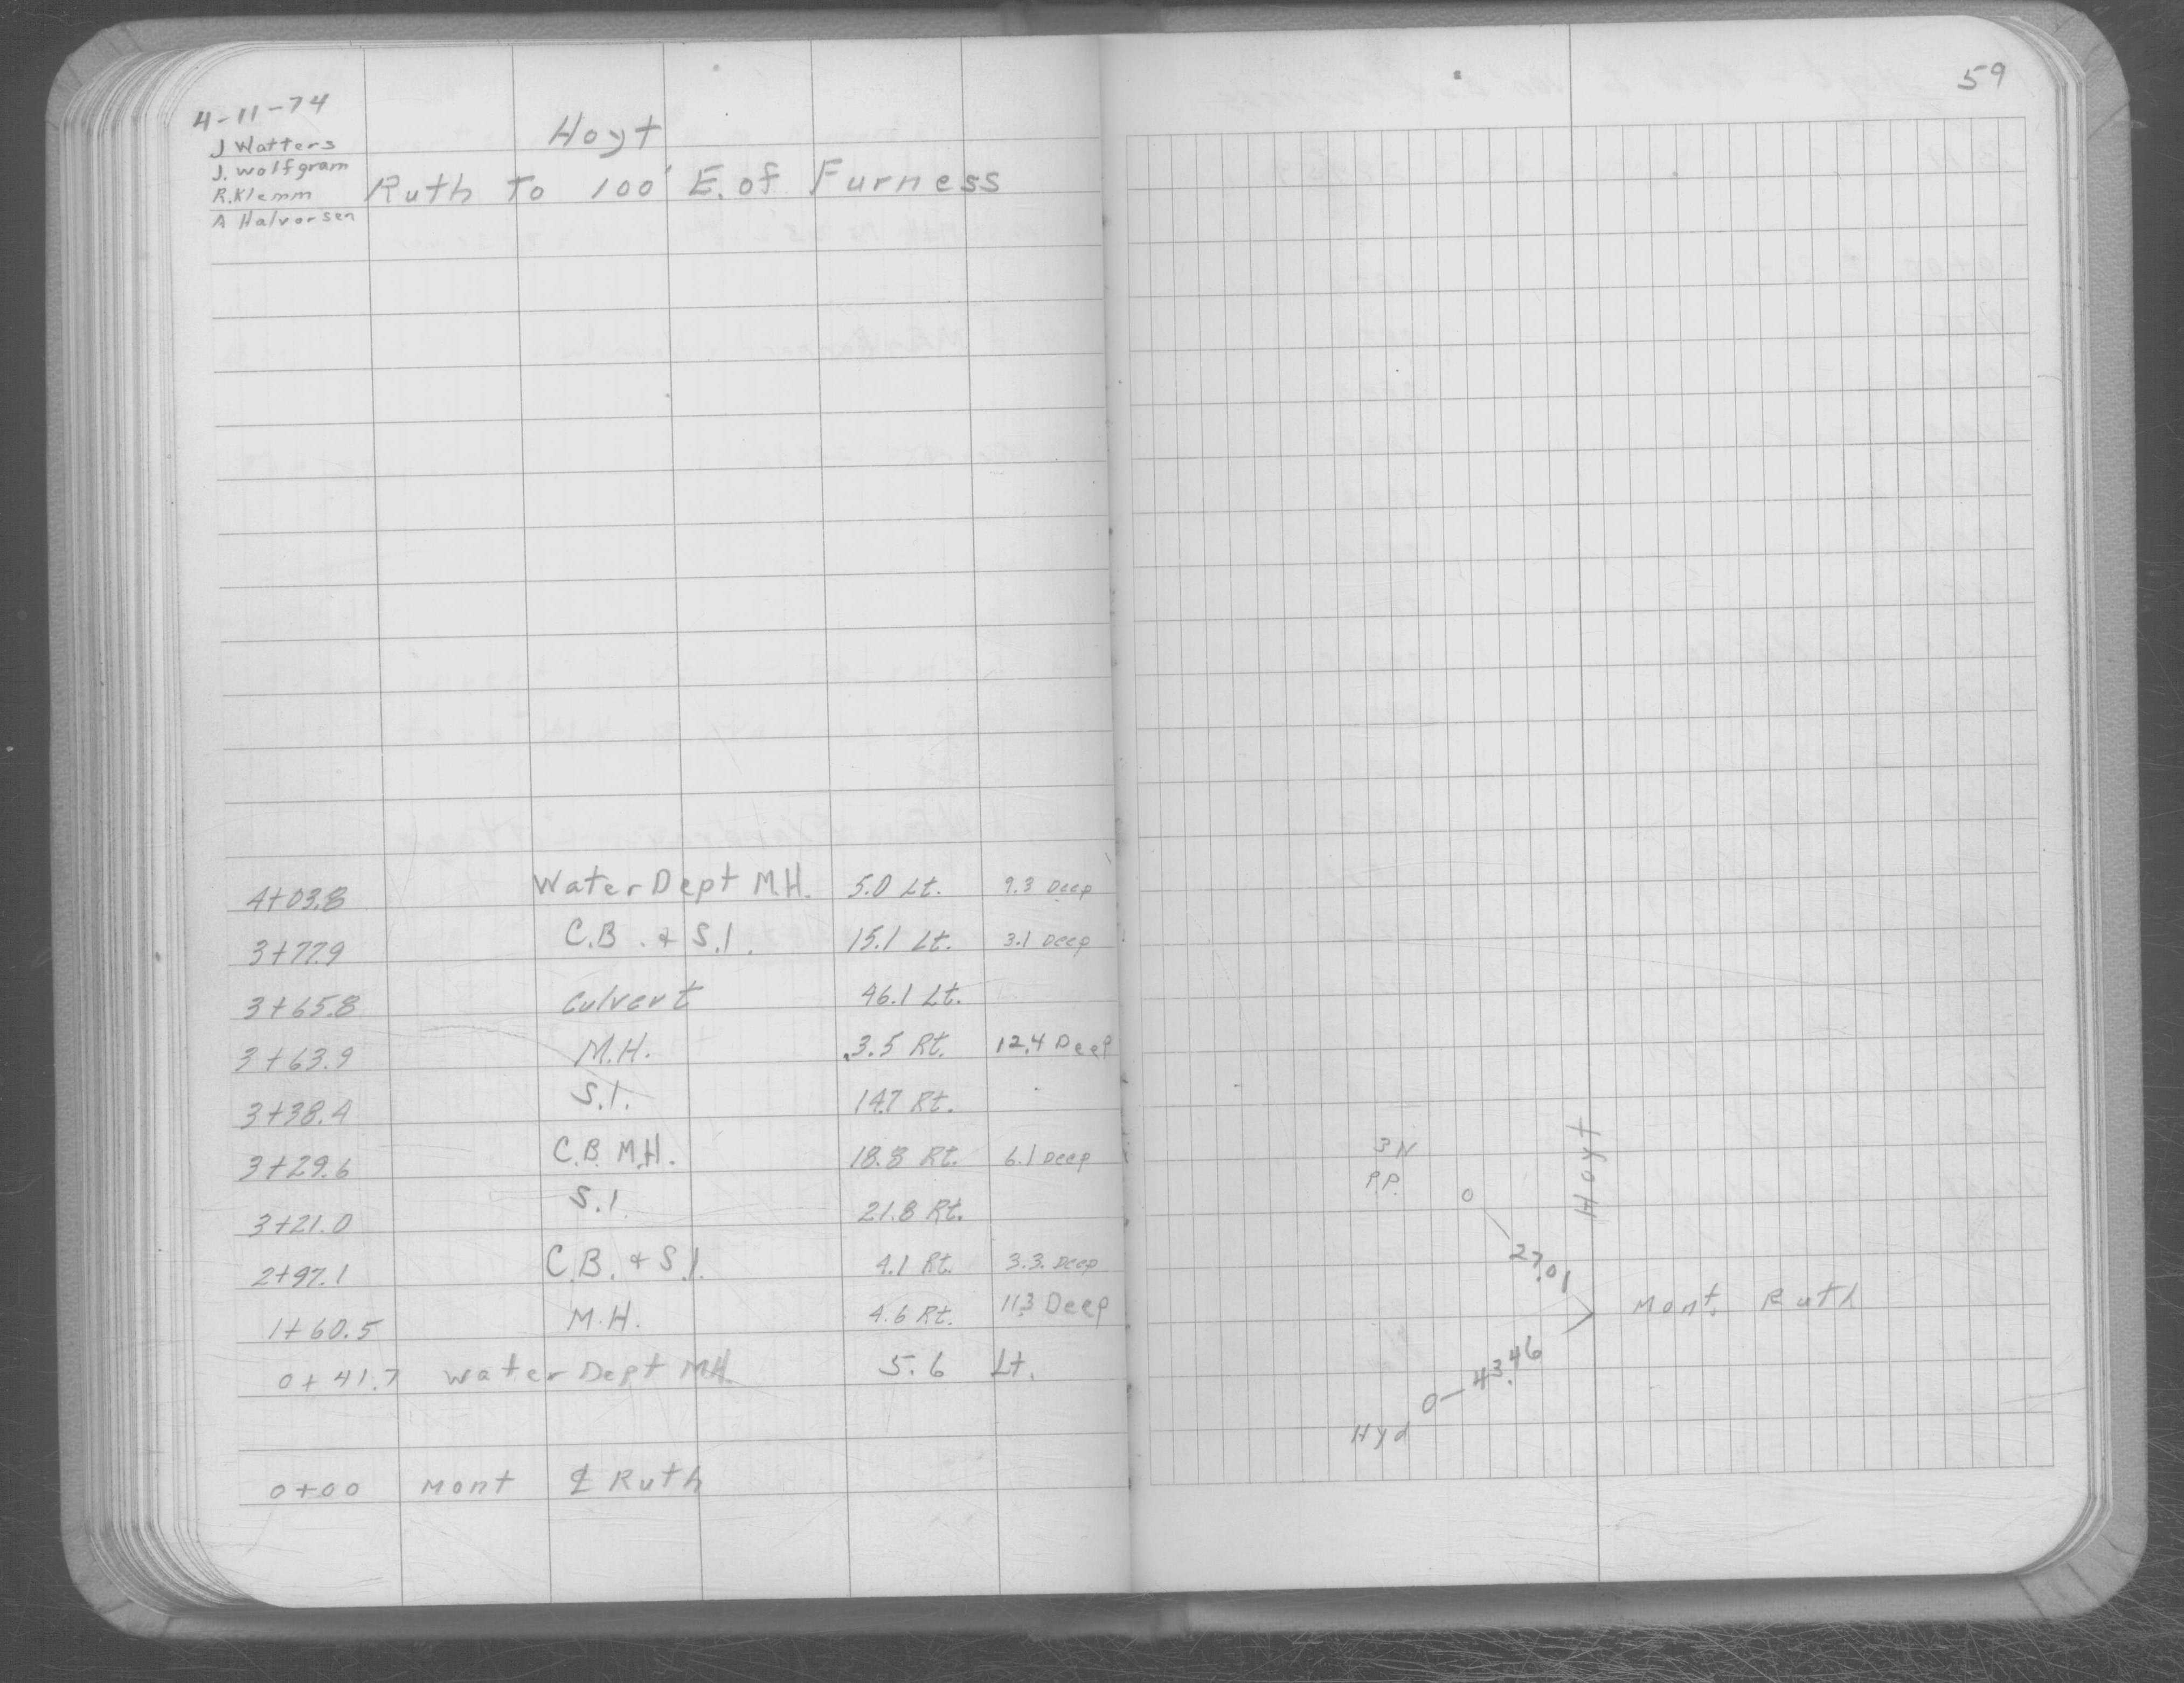 4-11-74
J Watters
J. Wolfgram
R. Klemm
A Halvorsen
Hoyt
Ruth To 100' E. of Furness
4+03.8 Water Dept M.H. 5.0 Lt. 9.3 Deep
3+77.9 C.B. & S.I. 15.1 Lt. 3.1 Deep
3+65.8 Culvert 46.1 Lt.
3+63.9 M.H. 3.5 Rt. 12.4 Deep
3+38.4 S.I. 14.7 Rt.
3+29.6 C.B. M.H. 18.8 Rt. 6.1 Deep
3+21.0 S.I. 21.8 Rt.
2+97.1 C.B. & S.I. 4.1 Rt. 3.3 Deep
1+60.5 M.H. 4.6 Rt. 11.3 Deep
0+41.7 Water Dept M.H. 5.6 Lt.
0+00 Mont ℄ Ruth
59
3N
P.P.
Hoyt
27.01
Mont. Ruth
43.46
Hyd